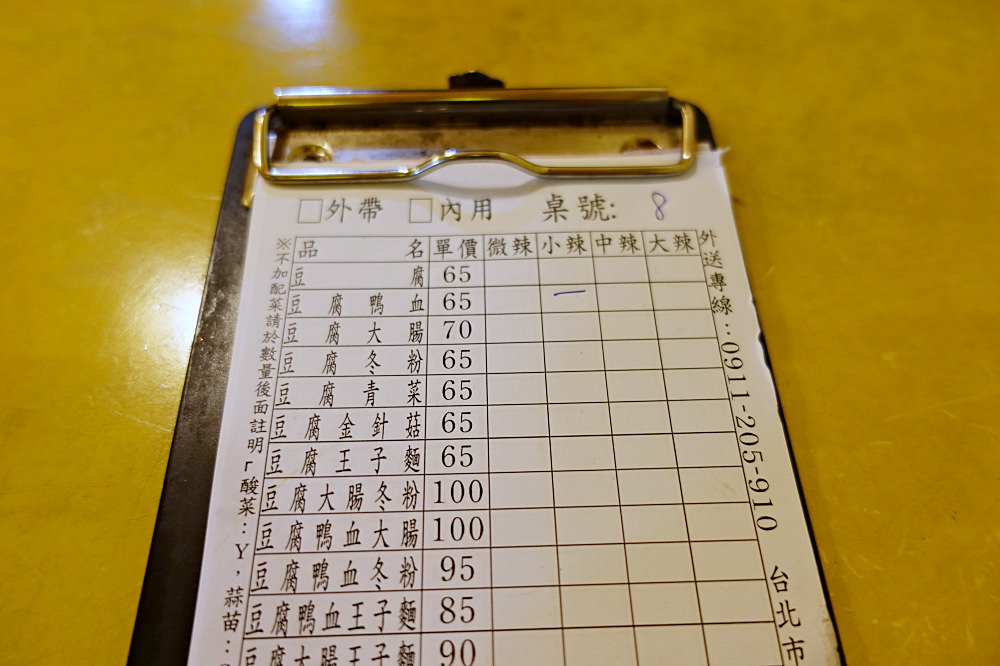 □外帶 □內用 桌號: 8
品名 單價 微辣 小辣 中辣 大辣
豆腐 65
豆腐鴨血 65 一
豆腐大腸 70
豆腐冬粉 65
豆腐青菜 65
豆腐金針菇 65
豆腐王子麵 65
豆腐大腸冬粉 100
豆腐鴨血大腸 100
豆腐鴨血冬粉 95
豆腐鴨血王子麵 85
豆腐大腸王子麵 90
※不加配菜請於數量後面註明「酸菜:Y,蒜苗:
外送專線:0911-205-910 台北市